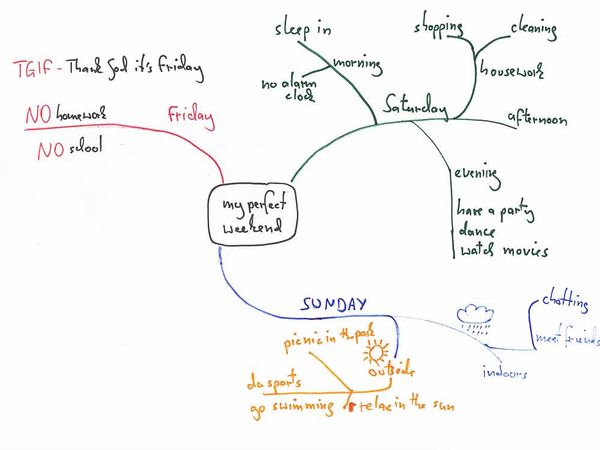 TGIF - Thank God it's Friday
NO homework
Friday
NO school
my perfect
weekend
sleep in
morning
no alarm
clock
Saturday
shopping
cleaning
housework
afternoon
evening
have a party
dance
watch movies
SUNDAY
picnic in the park
outside
do sports
go swimming
relax in the sun
chatting
meet friends
indoors